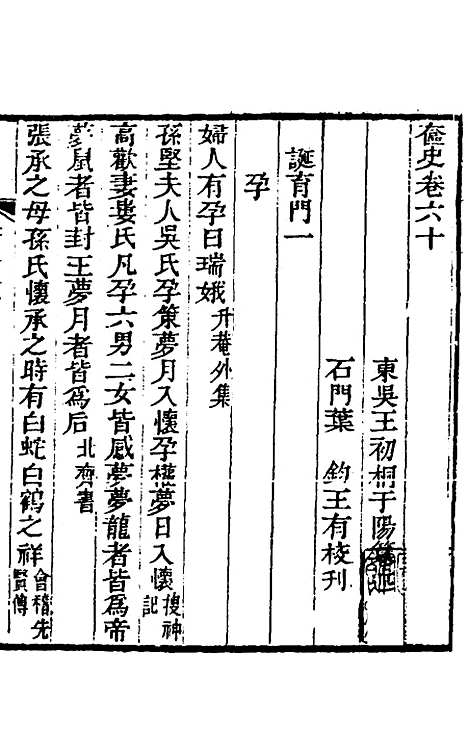 奩史卷六十
東吳王初桐于陽
石門葉 鈞王有校刊
誕育門一
孕
婦人有孕曰瑞娥升菴外集
孫堅夫人吳氏孕策夢月入懷孕權夢日入懷搜神記
高歡妻婁氏凡孕六男二女皆感夢夢龍者皆為帝
夢鼠者皆封王夢月者皆為后北齊書
張承之母孫氏懷承之時有白蛇白鶴之祥會稽先賢傳